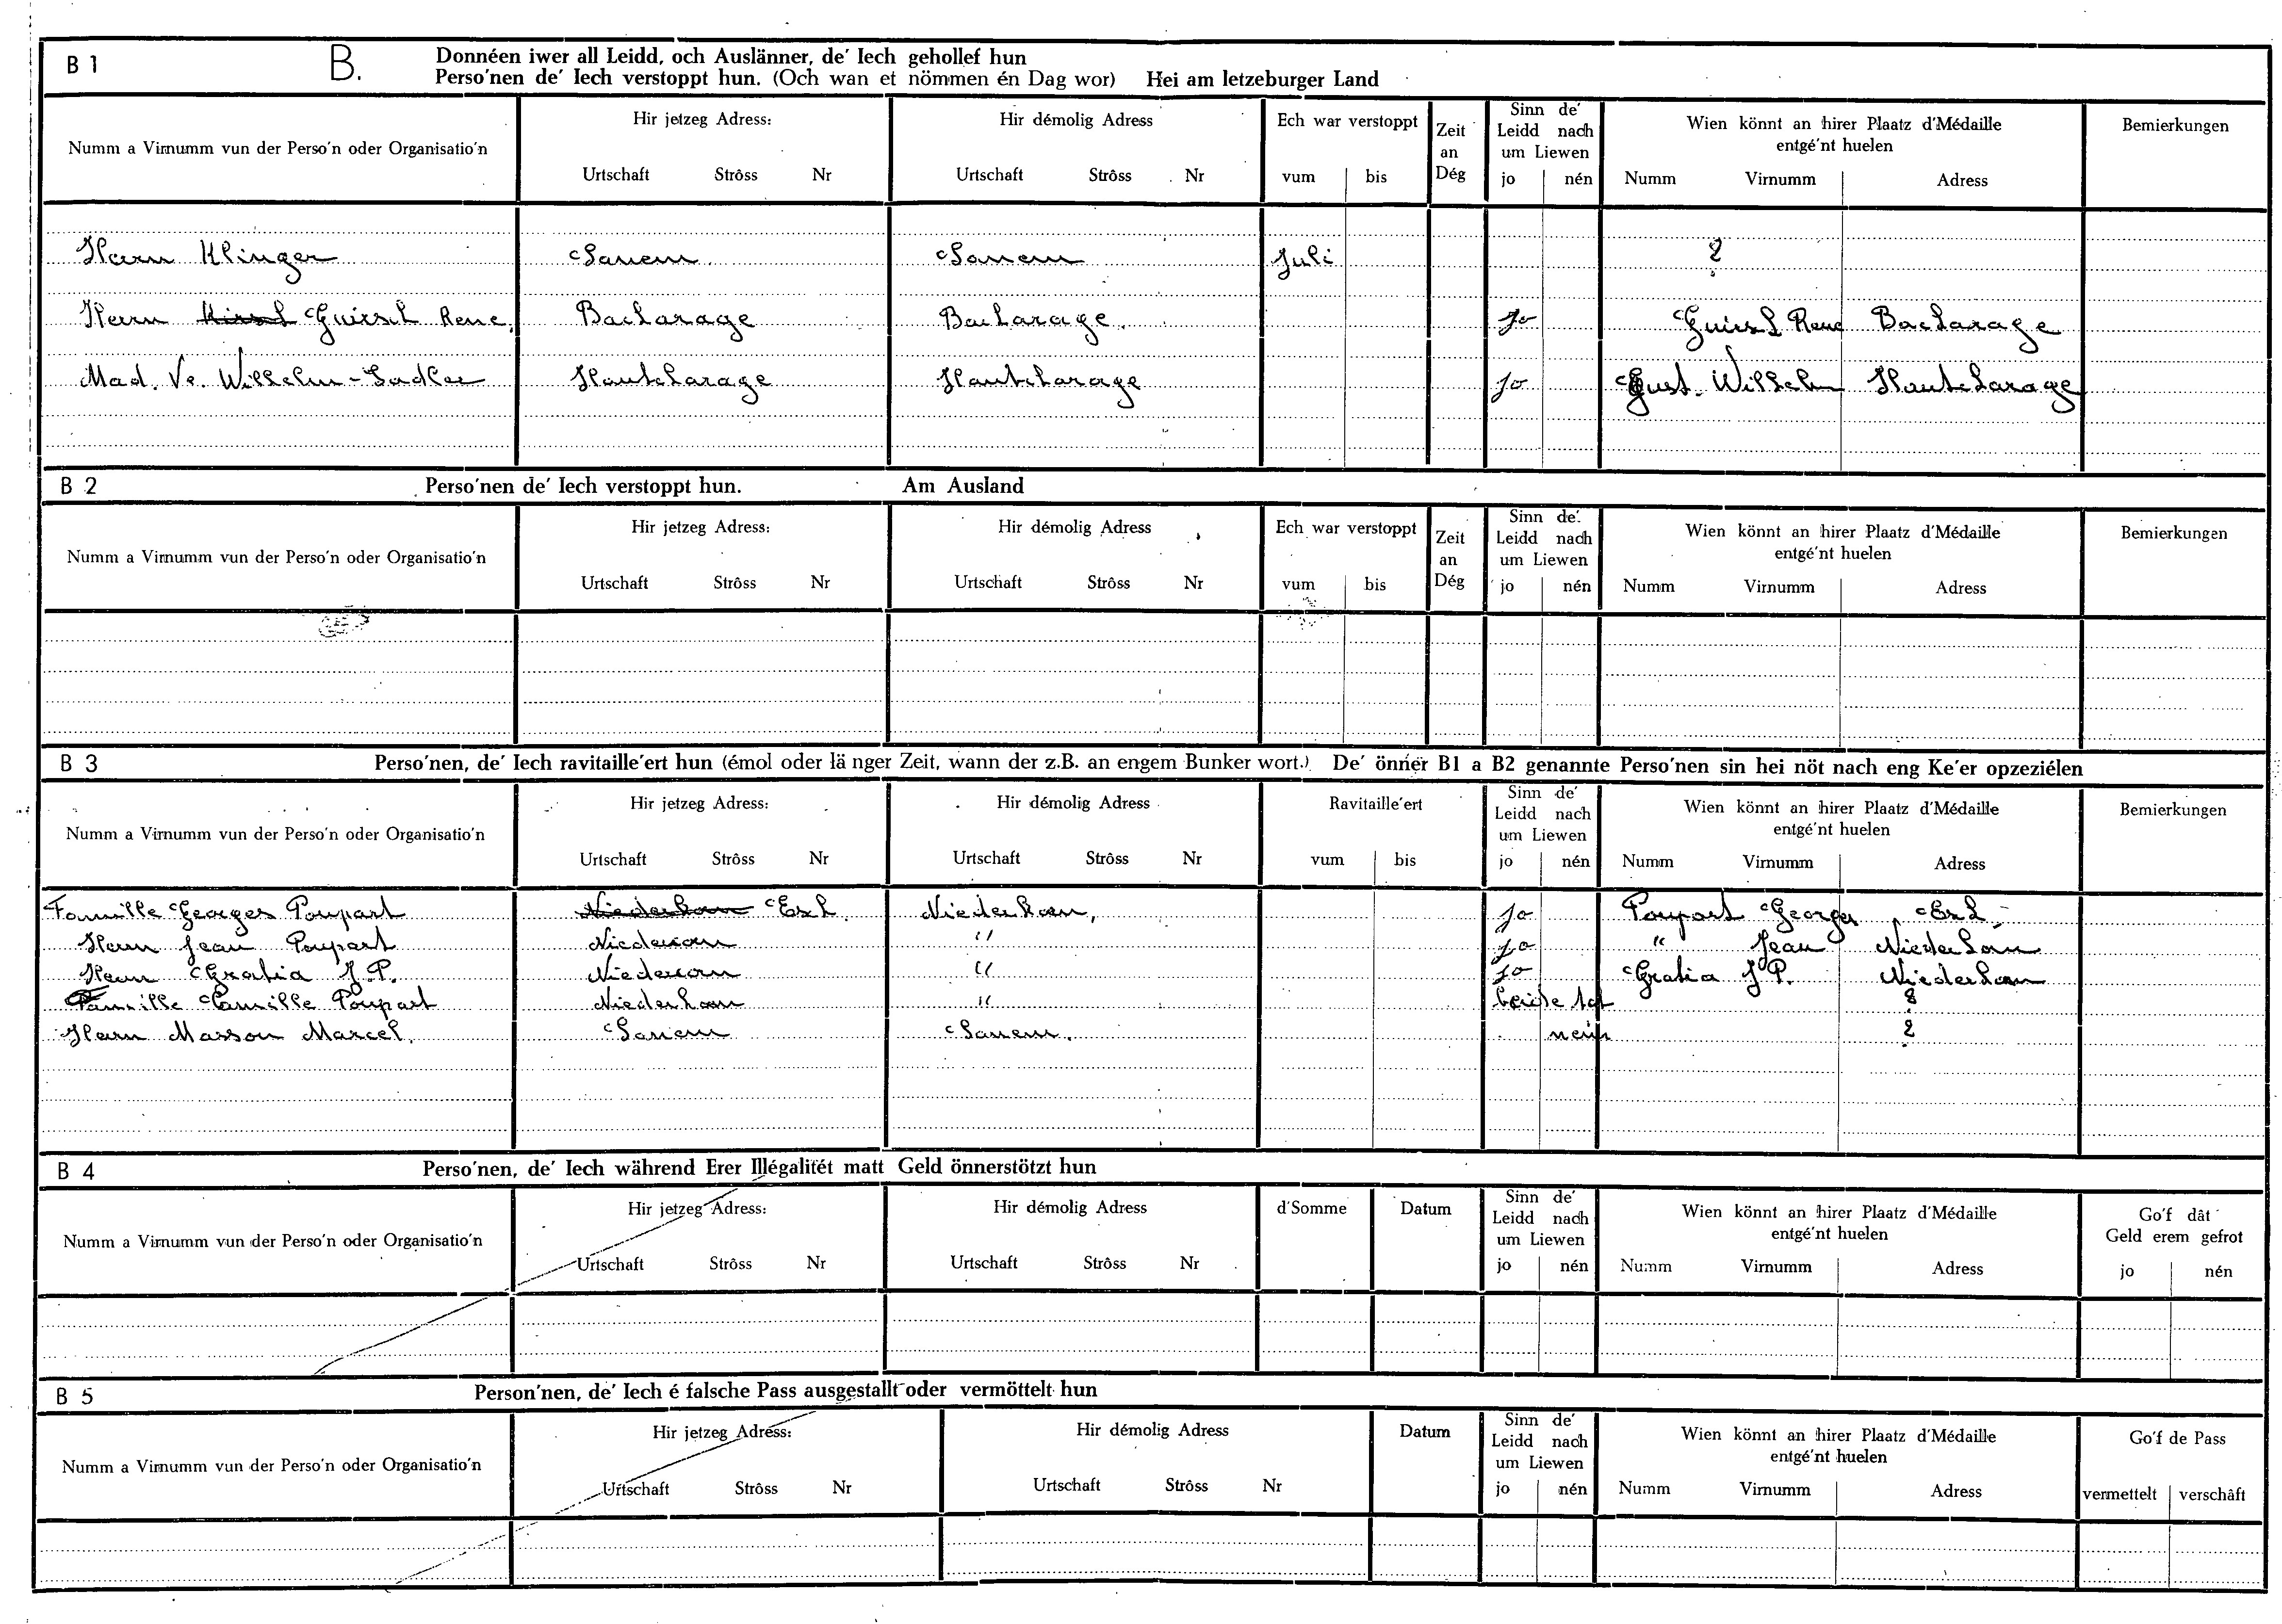 B 1 B. Donnéen iwer all Leidd, och Auslänner, de' Iech gehollef hun
Perso'nen de' Iech verstoppt hun. (Och wan et nömmen én Dag wor) Hei am letzeburger Land
Numm a Virnumm vun der Perso'n oder Organisatio'n
Hir jetzeg Adress:
Urtschaft Strôss Nr
Hir démolig Adress
Urtschaft Strôss Nr
Ech war verstoppt
vum bis
Zeit
an
Dég
Sinn de'
Leidd nach
um Liewen
jo nén
Wien könnt an hirer Plaatz d'Médaille
entgé'nt huelen
Numm Virnumm Adress
Bemierkungen
Herrn Klinger Sanem Sanem Juli ?
Herrn Guirsch Rene. Bascharage Bascharage. Jo Guirsch Rene Bascharage
Mad. Ve. Wilhelm-Sadler Hautcharage Hautcharage Jo Gust. Wilhelm Hautcharage
B 2 Perso'nen de' Iech verstoppt hun. Am Ausland
Numm a Virnumm vun der Perso'n oder Organisatio'n
Hir jetzeg Adress:
Urtschaft Strôss Nr
Hir démolig Adress
Urtschaft Strôss Nr
Ech war verstoppt
vum bis
Zeit
an
Dég
Sinn de'
Leidd nach
um Liewen
jo nén
Wien könnt an hirer Plaatz d'Médaille
entgé'nt huelen
Numm Virnumm Adress
Bemierkungen
B 3 Perso'nen, de' Iech ravitaille'ert hun (émol oder länger Zeit, wann der z.B. an engem Bunker wort.) De' önner B1 a B2 genannte Perso'nen sin hei nöt nach eng Ke'er opzeziélen
Numm a Virnumm vun der Perso'n oder Organisatio'n
Hir jetzeg Adress:
Urtschaft Strôss Nr
Hir démolig Adress
Urtschaft Strôss Nr
Ravitaille'ert
vum bis
Sinn de'
Leidd nach
um Liewen
jo nén
Wien könnt an hirer Plaatz d'Médaille
entgé'nt huelen
Numm Virnumm Adress
Bemierkungen
Famille Georges Poupart Niederkorn Esch. Niederkorn, Jo Poupart Georges, Esch
Herrn Jean Poupart Niedercorn " Jo " Jean Niederkorn
Herrn Gratia J.P. Niedercorn " Jo Gratia J.P. Niederkorn
Famille Camille Poupart Niederkorn " beide tot ?
Herrn Masson Marcel. Sanem Sanem. nein ?
B 4 Perso'nen, de' Iech während Erer Illégalitét matt Geld önnerstötzt hun
Numm a Virnumm vun der Perso'n oder Organisatio'n
Hir jetzeg Adress:
Urtschaft Strôss Nr
Hir démolig Adress
Urtschaft Strôss Nr
d'Somme
Datum
Sinn de'
Leidd nach
um Liewen
jo nén
Wien könnt an hirer Plaatz d'Médaille
entgé'nt huelen
Numm Virnumm Adress
Go'f dât
Geld erem gefrot
jo nén
B 5 Person'nen, de' Iech é falsche Pass ausgestallt oder vermöttelt hun
Numm a Virnumm vun der Perso'n oder Organisatio'n
Hir jetzeg Adress:
Urtschaft Strôss Nr
Hir démolig Adress
Urtschaft Strôss Nr
Datum
Sinn de'
Leidd nach
um Liewen
jo nén
Wien könnt an hirer Plaatz d'Médaille
entgé'nt huelen
Numm Virnumm Adress
Go'f de Pass
vermettelt verschâft